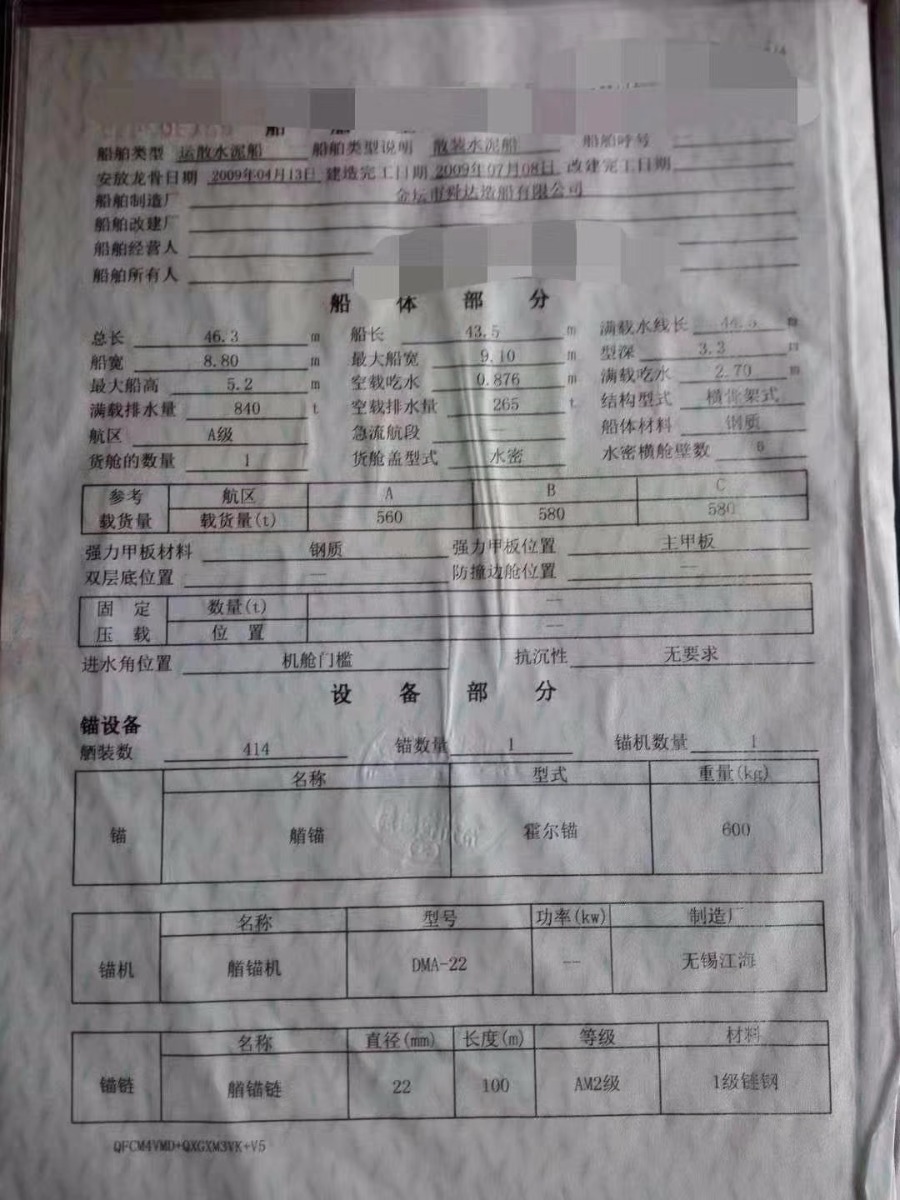 船舶类型 运散水泥船 船舶类型说明 散装水泥船 船舶呼号
安放龙骨日期 2009年04月13日 建造完工日期 2009年07月08日 改建完工日期
船舶制造厂 金坛市舜达造船有限公司
船舶改建厂
船舶经营人
船舶所有人
船 体 部 分
总长 46.3 m 船长 43.5 m 满载水线长 m
船宽 8.80 m 最大船宽 9.10 m 型深 3.3 m
最大船高 5.2 m 空载吃水 0.876 m 满载吃水 2.70 m
满载排水量 840 t 空载排水量 265 t 结构型式 横骨架式
航区 A级 急流航段 — 船体材料 钢质
货舱的数量 1 货舱盖型式 水密 水密横舱壁数 6
参考 航区 A B C
载货量 载货量(t) 560 580 580
强力甲板材料 钢质 强力甲板位置 主甲板
双层底位置 — 防撞边舱位置 —
固 定 数量(t) —
压 载 位 置 —
进水角位置 机舱门槛 抗沉性 无要求
设 备 部 分
锚设备
舾装数 414 锚数量 1 锚机数量 1
名称 型式 重量(kg)
锚 艏锚 霍尔锚 600
名称 型号 功率(kw) 制造厂
锚机 艏锚机 DMA-22 — 无锡江海
名称 直径(mm) 长度(m) 等级 材料
锚链 艏锚链 22 100 AM2级 1级锤钢
QFCM4VMD+QXGXM3VK+V5